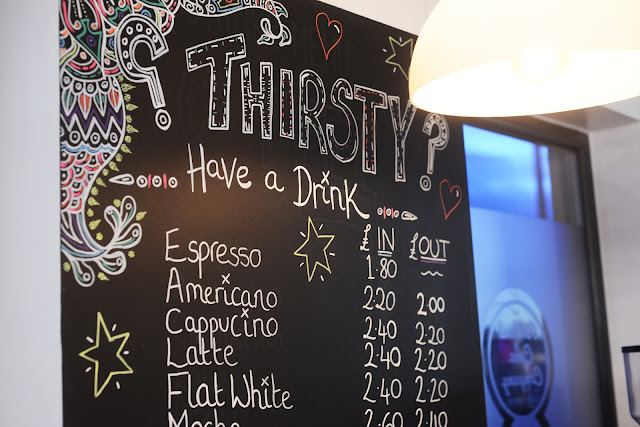 ¿THIRSTY?
Have a Drink
£ IN £ OUT
Espresso 1·80 ~
Americano 2·20 2·00
Cappucino 2·40 2·20
Latte 2·40 2·20
Flat White 2·40 2·20
Mocha 2·60 2·40